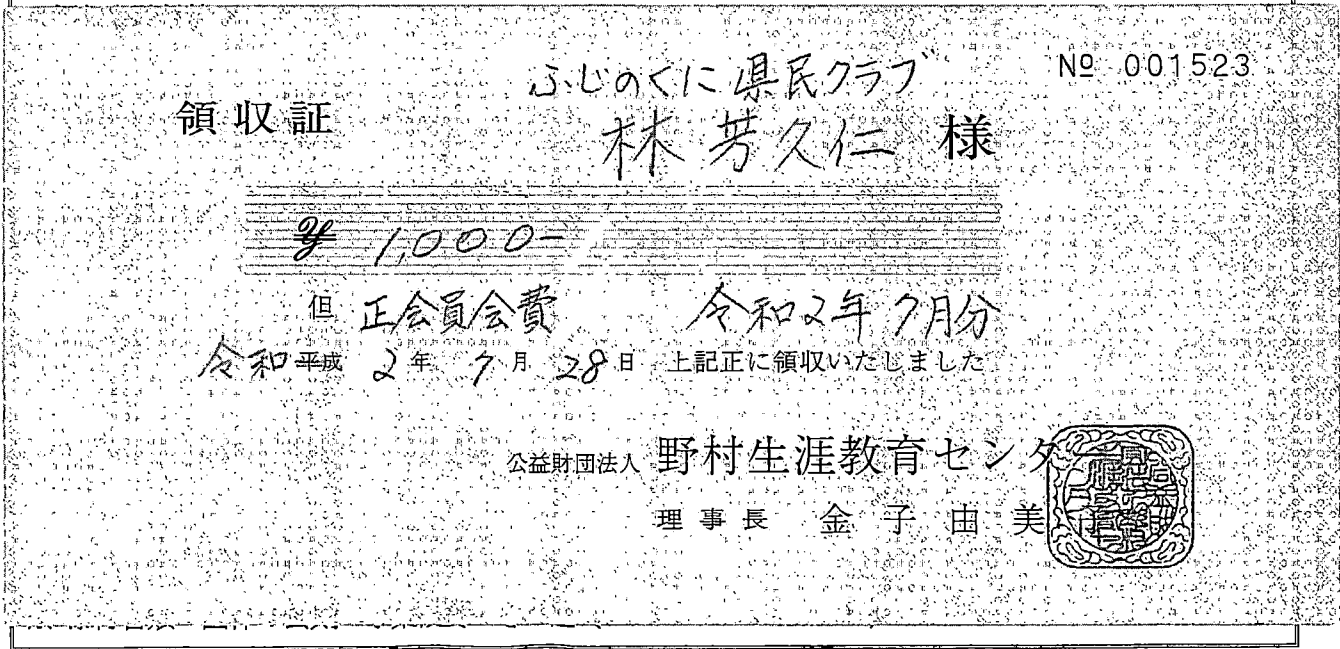 № 001523
ふじのくに県民クラブ
領収証
林 芳久仁 様
¥ 1,000-
但 正会員会費 令和2年7月分
令和 平成 2年 7月 28日 上記正に領収いたしました
公益財団法人 野村生涯教育センター
理事長 金子由美